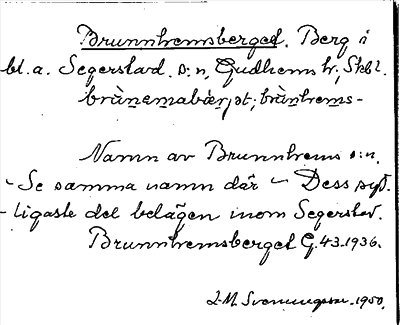 Brunnhemsberget. Berg i
bl. a. Segerstad s:n, Gudhems hr, Skbl.
Namn av Brunnhems s:n.
- Se samma namn där - Dess syd-
ligaste del belägen inom Segerstad.
Brunnhemsberget G. 43. 1936.
1950.